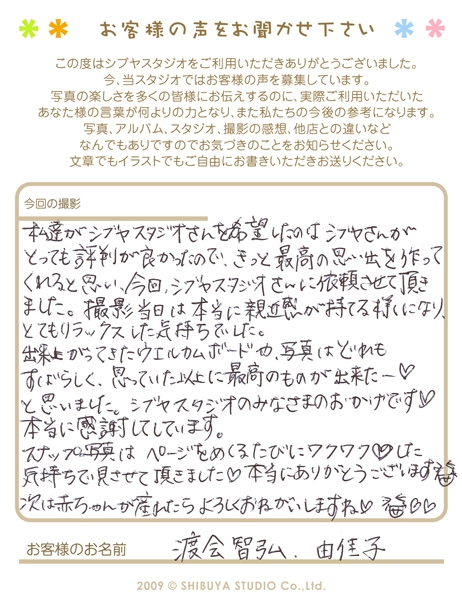 お客様の声をお聞かせ下さい
この度はシブヤスタジオをご利用いただきありがとうございました。
今、当スタジオではお客様の声を募集しています。
写真の楽しさを多くの皆様にお伝えするのに、実際ご利用いただいた
あなた様の言葉が何よりの力となり、また私たちの今後の参考になります。
写真、アルバム、スタジオ、撮影の感想、他店との違いなど
なんでもありですのでお気づきのことをお知らせください。
文章でもイラストでもご自由にお書きいただきお送りください。
今回の撮影
私達がシブヤスタジオさんを希望したのは シブヤさんが
とっても評判が良かったので、きっと最高の思い出を作って
くれると思い、今回、シブヤスタジオさんに依頼させて頂き
ました。撮影当日は本当に親近感が持てる様になり、
とてもリラックスした気持ちでした。
出来上がってきたウエルカムボードや、写真はどれも
すばらしく、思っていた以上に最高のものが出来たー♡
と思いました。シブヤスタジオのみなさまのおかげです♡
本当に感謝してしています。
スナップ写真は ページをめくるたびにワクワク♡した
気持ちで見させて頂きました♡本当にありがとうございます
次は赤ちゃんが産れたら よろしくおねがいしますね♡
お客様のお名前
渡会智弘、由佳子
2009 © SHIBUYA STUDIO Co.,Ltd.